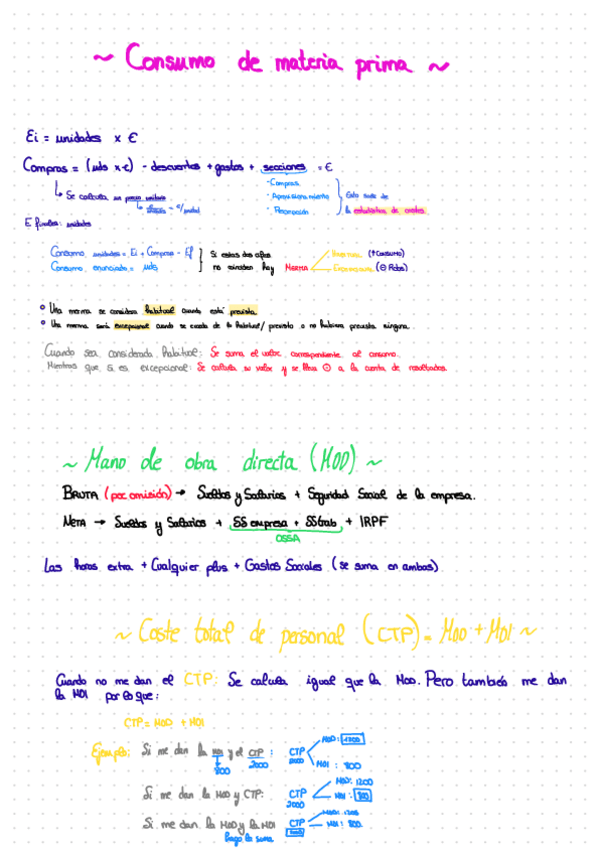 ~ Consumo de materia prima ~
Ei = unidades x €
Compras = (uds x €) - descuentos + gastos + secciones = €
↳ Se calcula un precio unitario
- Compras
- Aprovisionamiento
- Recepción
Esto sale de
la estadística de costes
E finales: unidades
Consumo unidades = Ei + Compras - Ef
Consumo enunciado = uds
Si estos dos
no coinciden hay MERMA
(↑Consumo)
Extraordinaria (⊖ Rdos)
• Una merma se considera habitual cuando está prevista.
• Una merma será excepcional cuando se exceda de lo habitual/ previsto o no hubiera prevista ninguna.
Cuando sea considerada habitual: Se suma el valor correspondiente al consumo.
Mientras que si es excepcional: Se calcula su valor y se lleva ⊖ a la cuenta de resultados.
~ Mano de obra directa (MOD) ~
BRUTA (por omisión) → Sueldos y Salarios + Seguridad Social de la empresa.
NETA → Sueldos y Salarios + SS empresa + SStrab + IRPF
OSSA
Las horas extra + Cualquier plus + Gastos Sociales (se suma en ambos)
~ Coste total de personal (CTP) = MOD + MOI ~
Cuando no me dan el CTP: Se calcula igual que la MOD. Pero también me dan
la MOI por lo que:
CTP = MOD + MOI
Ejemplo: Si me dan la MOI y el CTP:
800
2000
CTP
2000
MOD: 1200
MOI: 800
Si me dan la MOD y CTP:
CTP
2000
MOD: 1200
MOI: 800
Si me dan la MOD y la MOI
hago la suma
CTP
MOD: 1200
MOI: 800